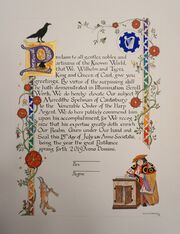 Proclaim to all gentles, nobles and
artisans of the Known World,
that We, Wilhelm and Tessa,
King and Queen of East, give you
greetings. By virtue of the surpassing skill
he hath demonstrated in Illumination, Scroll
Work, We do hereby elevate Our subject
Mareddthe Spelman of Canterbury
to the Venerable Order of the Harp
Argent. We do here publicly commend Jenos
upon his accomplishment, for We recog-
nize that his expertise greatly doth enrich
Our Realm. Given under Our hand and
Seal this 15th Day of July in Anno Societatis,
being the year the great Pestilance
spring forth. 2019 Anno Domini.
Rex
Regina